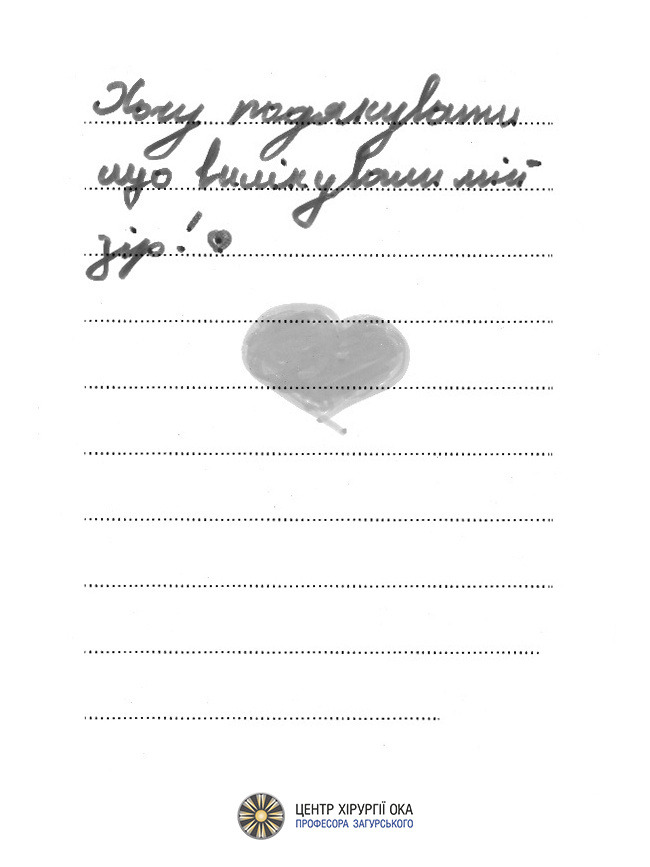 Хочу подякувати
що вилікували мій
зір!
ЦЕНТР ХІРУРГІЇ ОКА
ПРОФЕСОРА ЗАГУРСЬКОГО